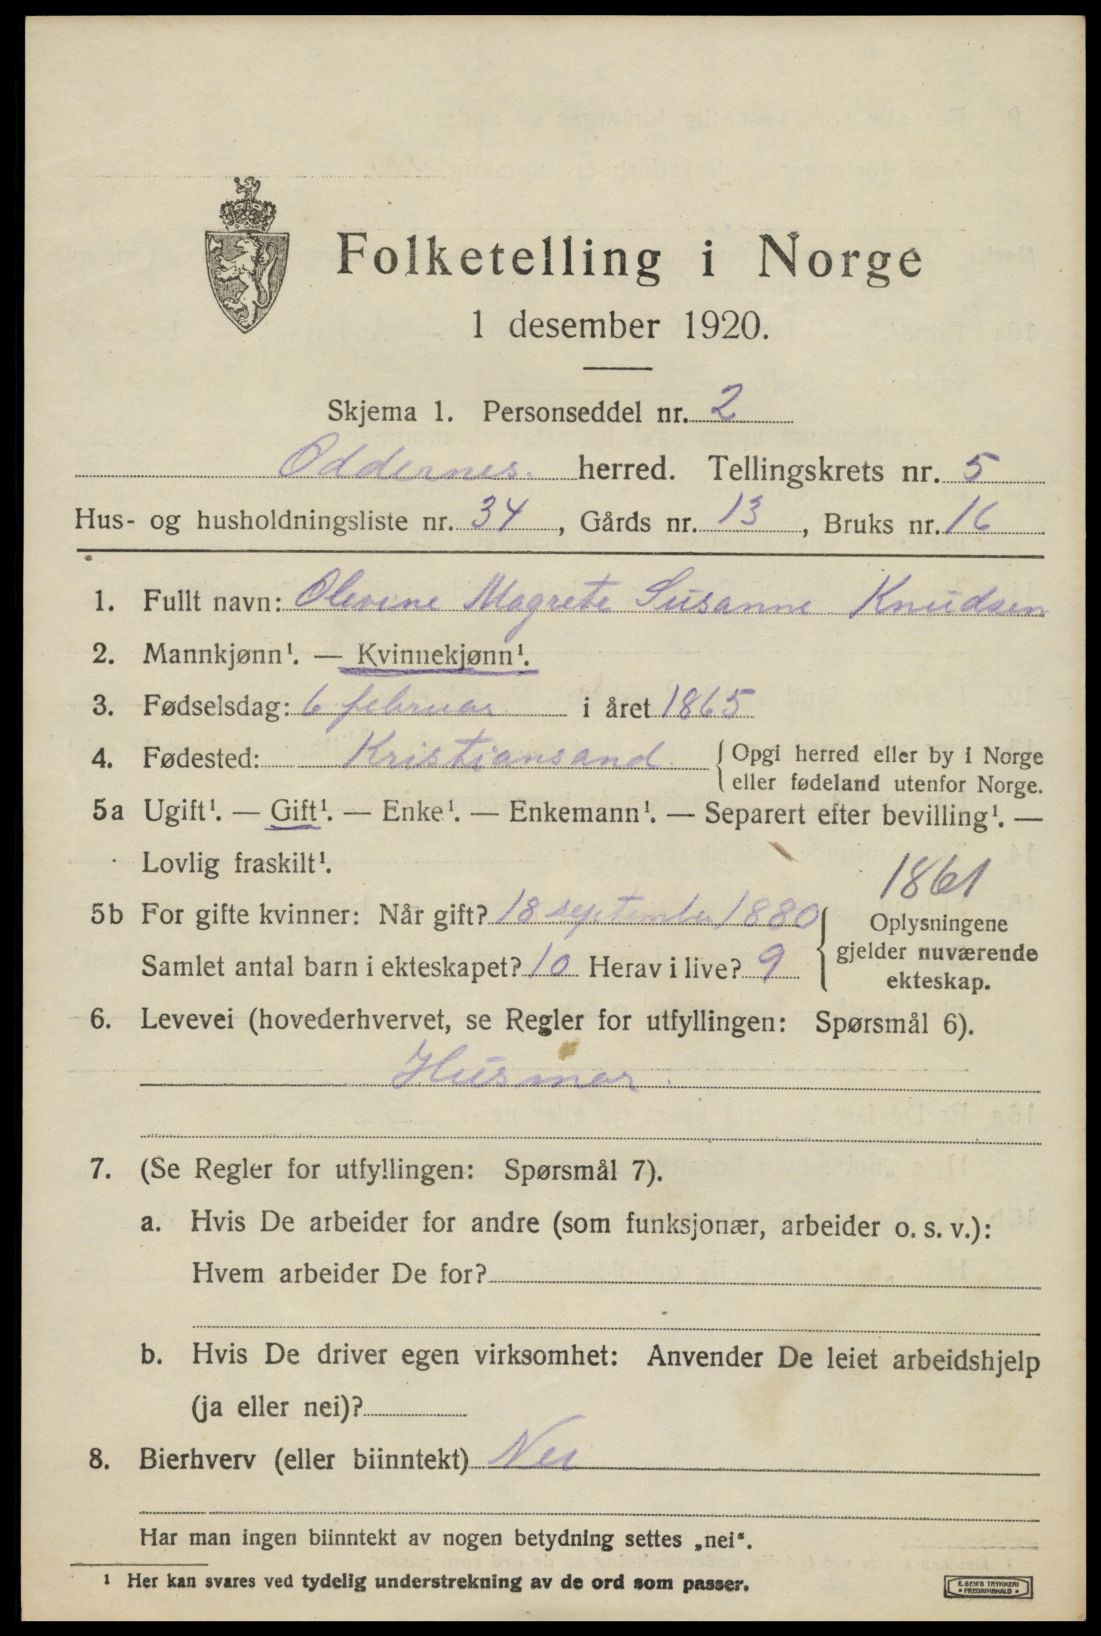 Folketelling i Norge
1 desember 1920.
Skjema 1. Personseddel nr. 2
Oddernes. herred. Tellingskrets nr. 5
Hus- og husholdningsliste nr. 34, Gårds nr. 13, Bruks nr. 16
1. Fullt navn: Olevine Magrete Susanne Knudsen
2. Mannkjønn¹. — Kvinnekjønn¹.
3. Fødselsdag: 6 februar i året 1865
4. Fødested: Kristiansand. { Opgi herred eller by i Norge
eller fødeland utenfor Norge.
5a Ugift¹. — Gift¹. — Enke¹. — Enkemann¹. — Separert efter bevilling¹. —
Lovlig fraskilt¹.
1861
5b For gifte kvinner: Når gift? 18 september 1880 { Oplysningene
gjelder nuværende
ekteskap.
Samlet antal barn i ekteskapet? 10 Herav i live? 9
6. Levevei (hovederhvervet, se Regler for utfyllingen: Spørsmål 6).
Husmor.
7. (Se Regler for utfyllingen: Spørsmål 7).
a. Hvis De arbeider for andre (som funksjonær, arbeider o. s. v.):
Hvem arbeider De for?
b. Hvis De driver egen virksomhet: Anvender De leiet arbeidshjelp
(ja eller nei)?
8. Bierhverv (eller biinntekt) Nei
Har man ingen biinntekt av nogen betydning settes „nei“.
¹ Her kan svares ved tydelig understrekning av de ord som passer.
E. SEM'S TRYKKERI
• FREDRIKSHALD •